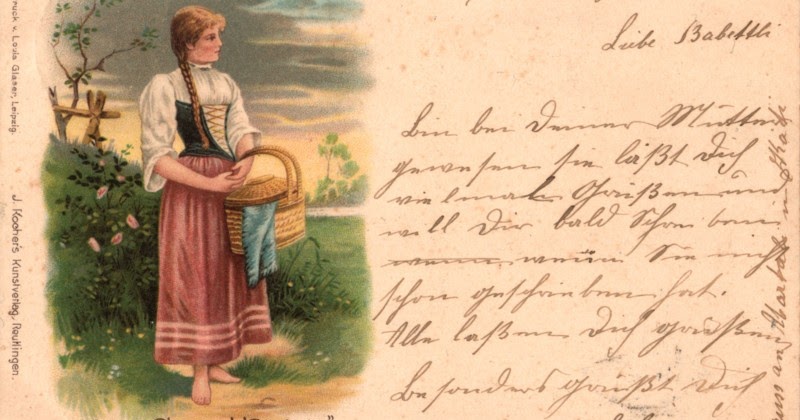 Druck v. Louis Glaser, Leipzig.
J. Kocher's Kunstverlag, Reutlingen.
Liebe Babettli
Bin bei Deiner Mutter
gewesen sie läßt Dich
viel mal Grüßen und
will Dir bald Schreiben
wenn wenn Sie nicht
schon geschrieben hat.
Alle laßen Dich grüßen
Besonders grüßt Dich